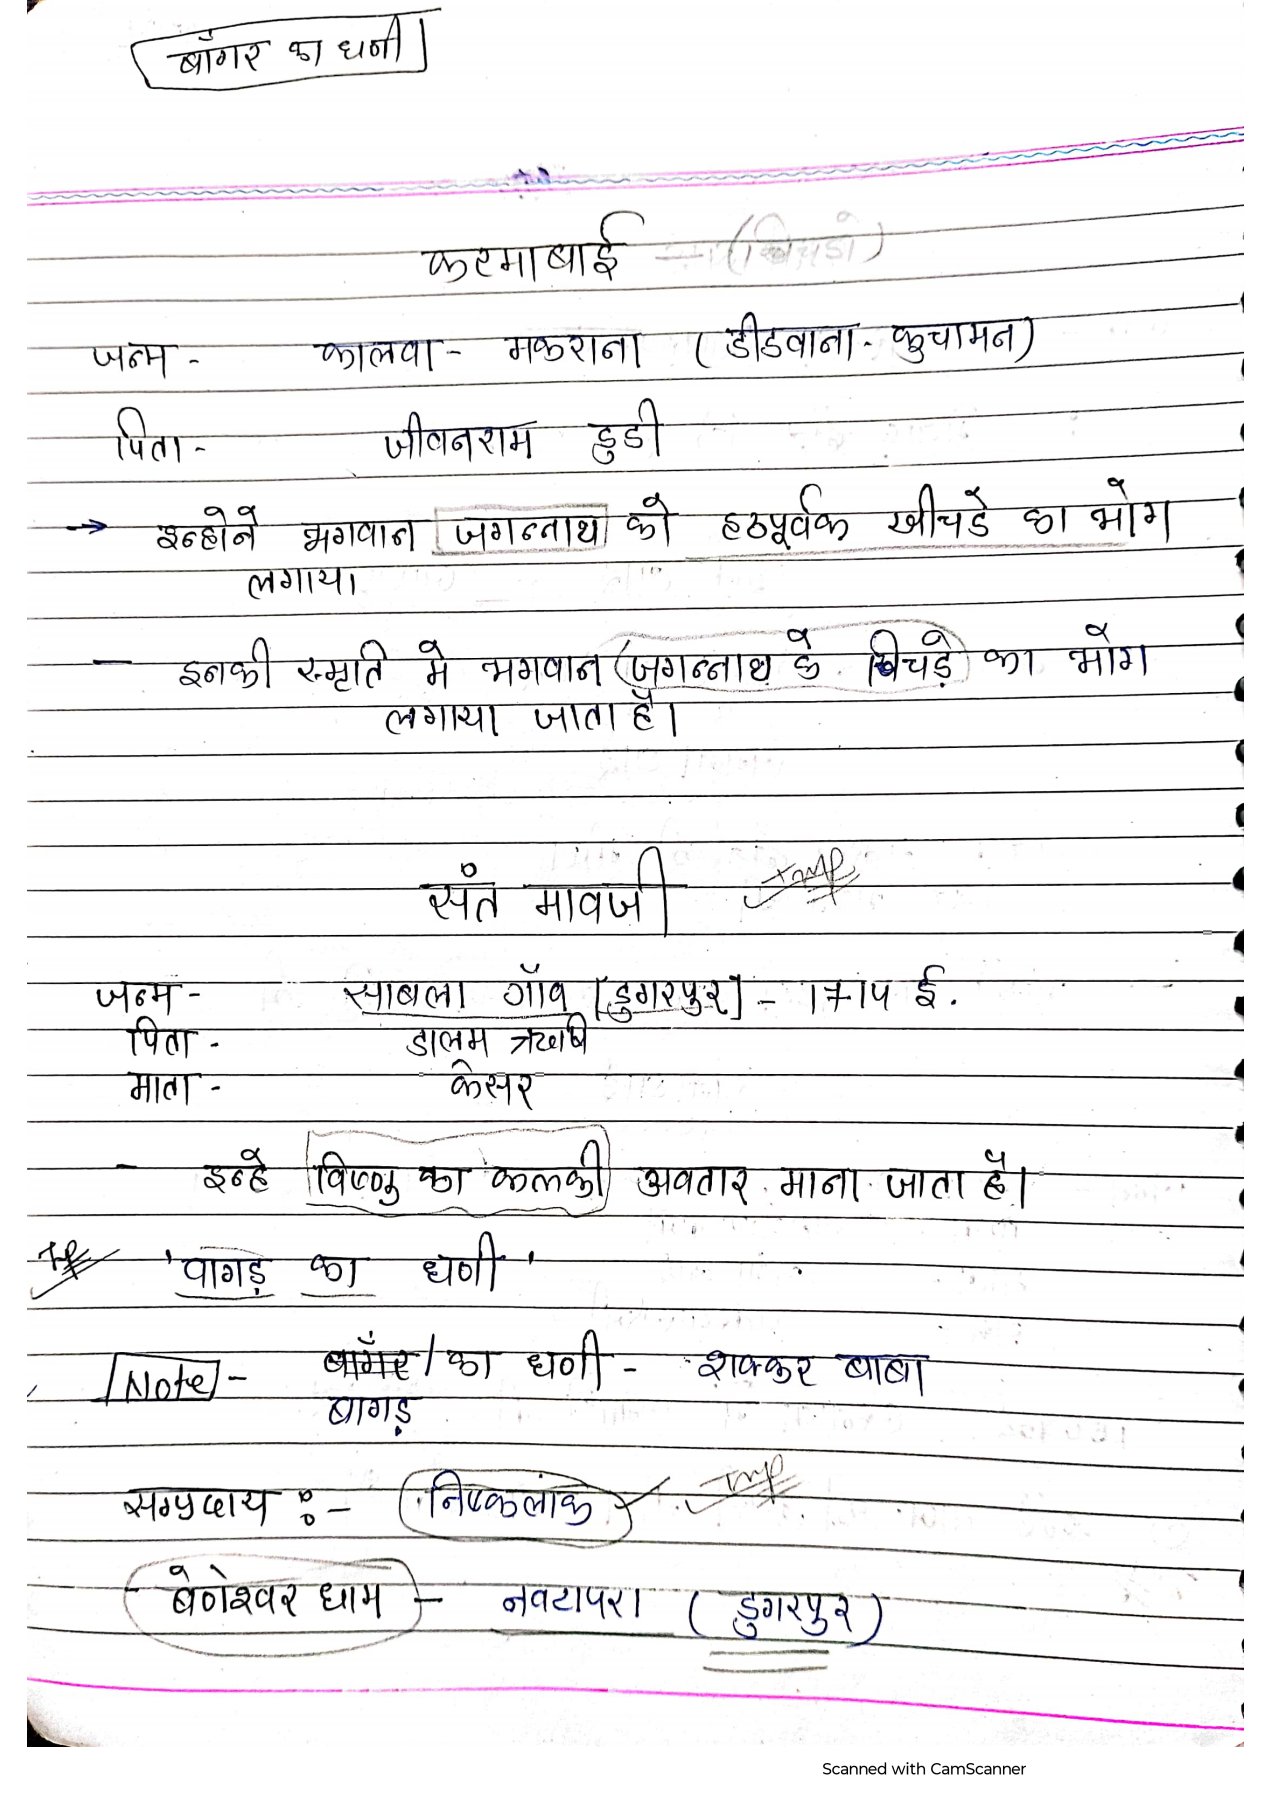 बाँगर का धणी
करमाबाई — (खिचडो)
जन्म - कालवा - मकराना (डीडवाना - कुचामन)
पिता - जीवनराम डुडी
→ इन्होने भगवान जगन्नाथ को हठपूर्वक खीचडे का भोग
लगाया।
— इनकी स्मृति मे भगवान (जगन्नाथ के खिचड़े) का भोग
लगाया जाता है।
संत मावजी Imp
जन्म - साबला गाँव [डुगरपुर] - 1714 ई.
पिता - डालम ऋषि
माता - केसर
- इन्हे विष्णु का कलकी अवतार माना जाता है।
Imp 'वागड़ का धणी'
Note - बाँगर / का धणी - शक्कर बाबा
बागड़
सम्प्रदाय :- निष्कलांक Imp
- बेणेश्वर धाम - नवटापरा (डुगरपुर)
Scanned with CamScanner